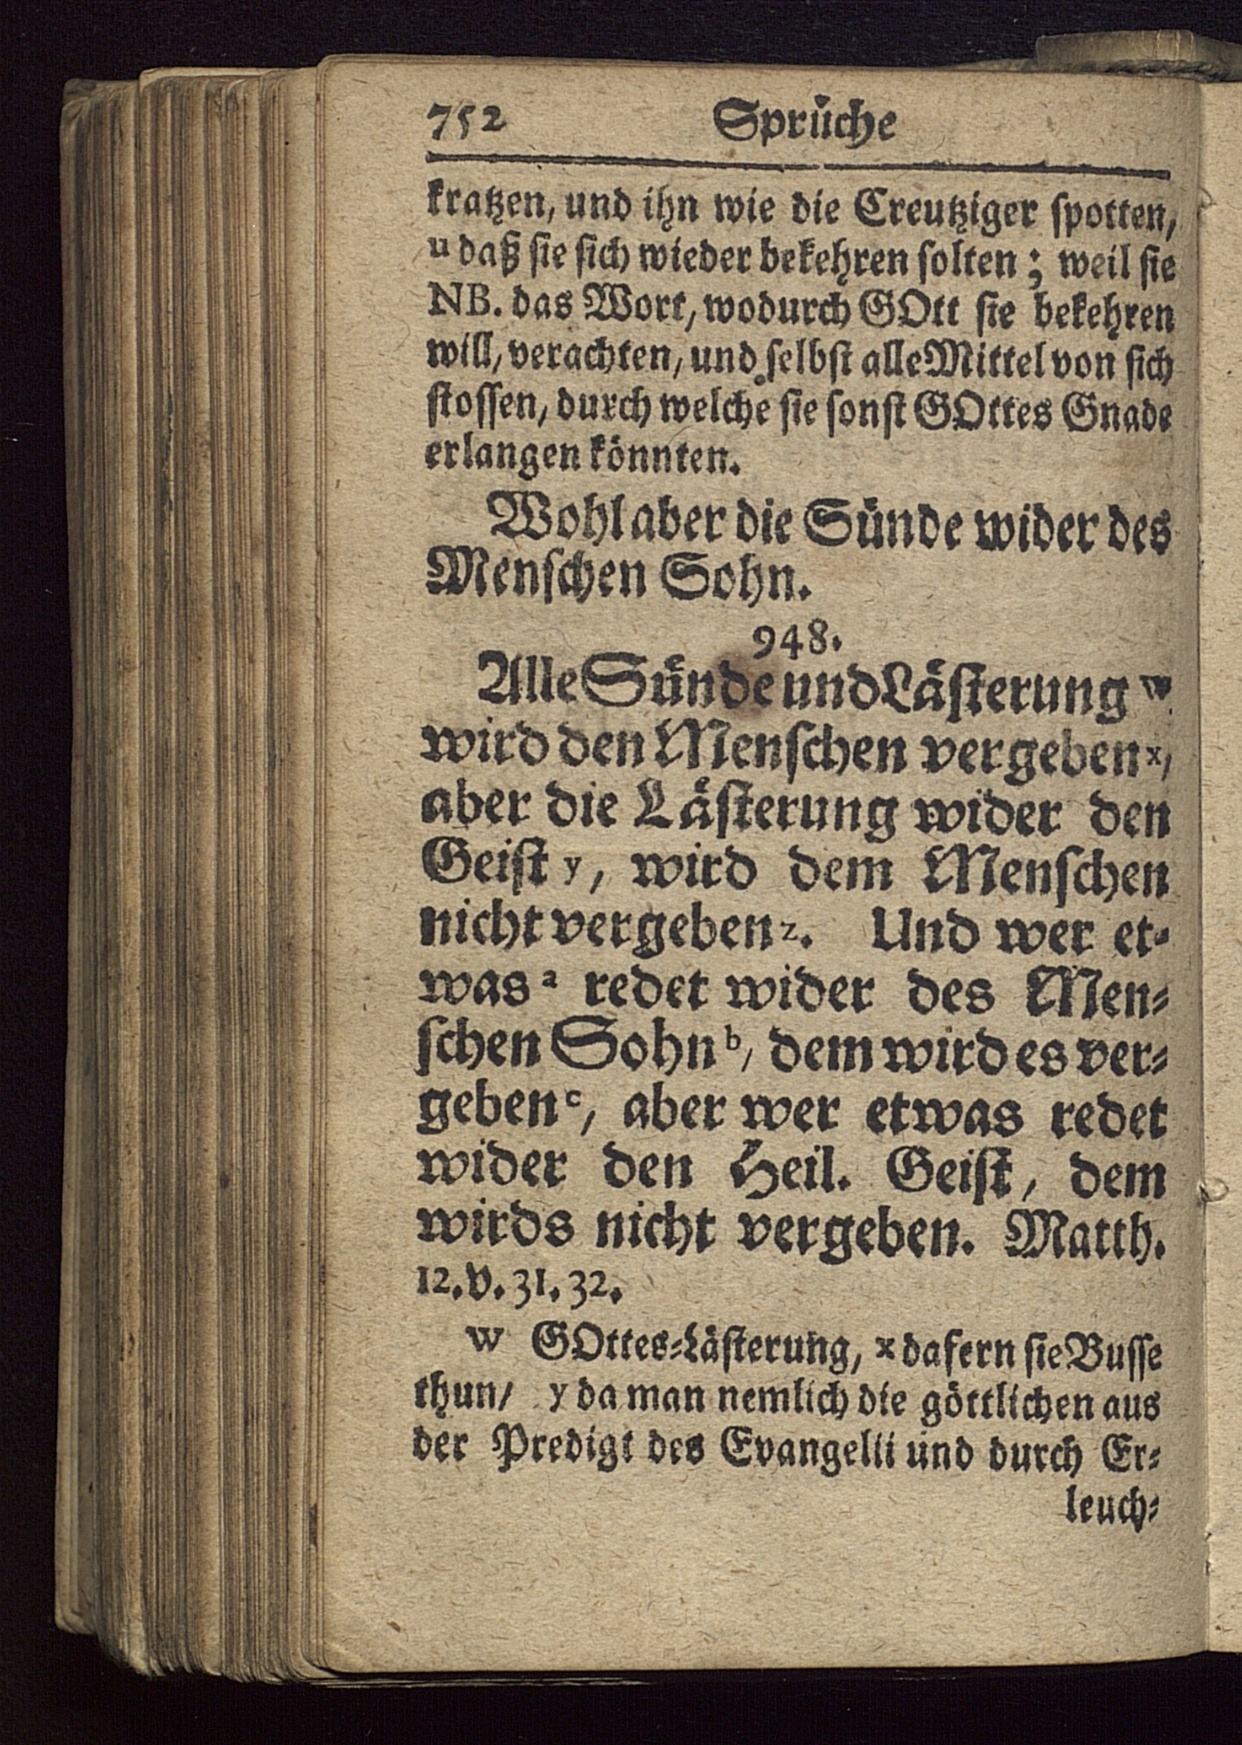 752 Sprüche
kratzen, und ihn wie die Creutziger spotten,
u daß sie sich wieder bekehren solten; weil sie
NB. das Wort, wodurch GOtt sie bekehren
will, verachten, und selbst alle Mittel von sich
stossen, durch welche sie sonst GOttes Gnade
erlangen könnten.
Wohl aber die Sünde wider des
Menschen Sohn.
948.
Alle Sünde und Lästerung w
wird den Menschen vergeben x,
aber die Lästerung wider den
Geist y, wird dem Menschen
nicht vergeben z. Und wer et-
was a redet wider des Men-
schen Sohn b, dem wird es ver-
geben c, aber wer etwas redet
wider den Heil. Geist, dem
wirds nicht vergeben. Matth.
12. v. 31. 32.
w GOttes-Lästerung, x dafern sie Busse
thun/ y da man nemlich die göttlichen aus
der Predigt des Evangelii und durch Er-
leuch-